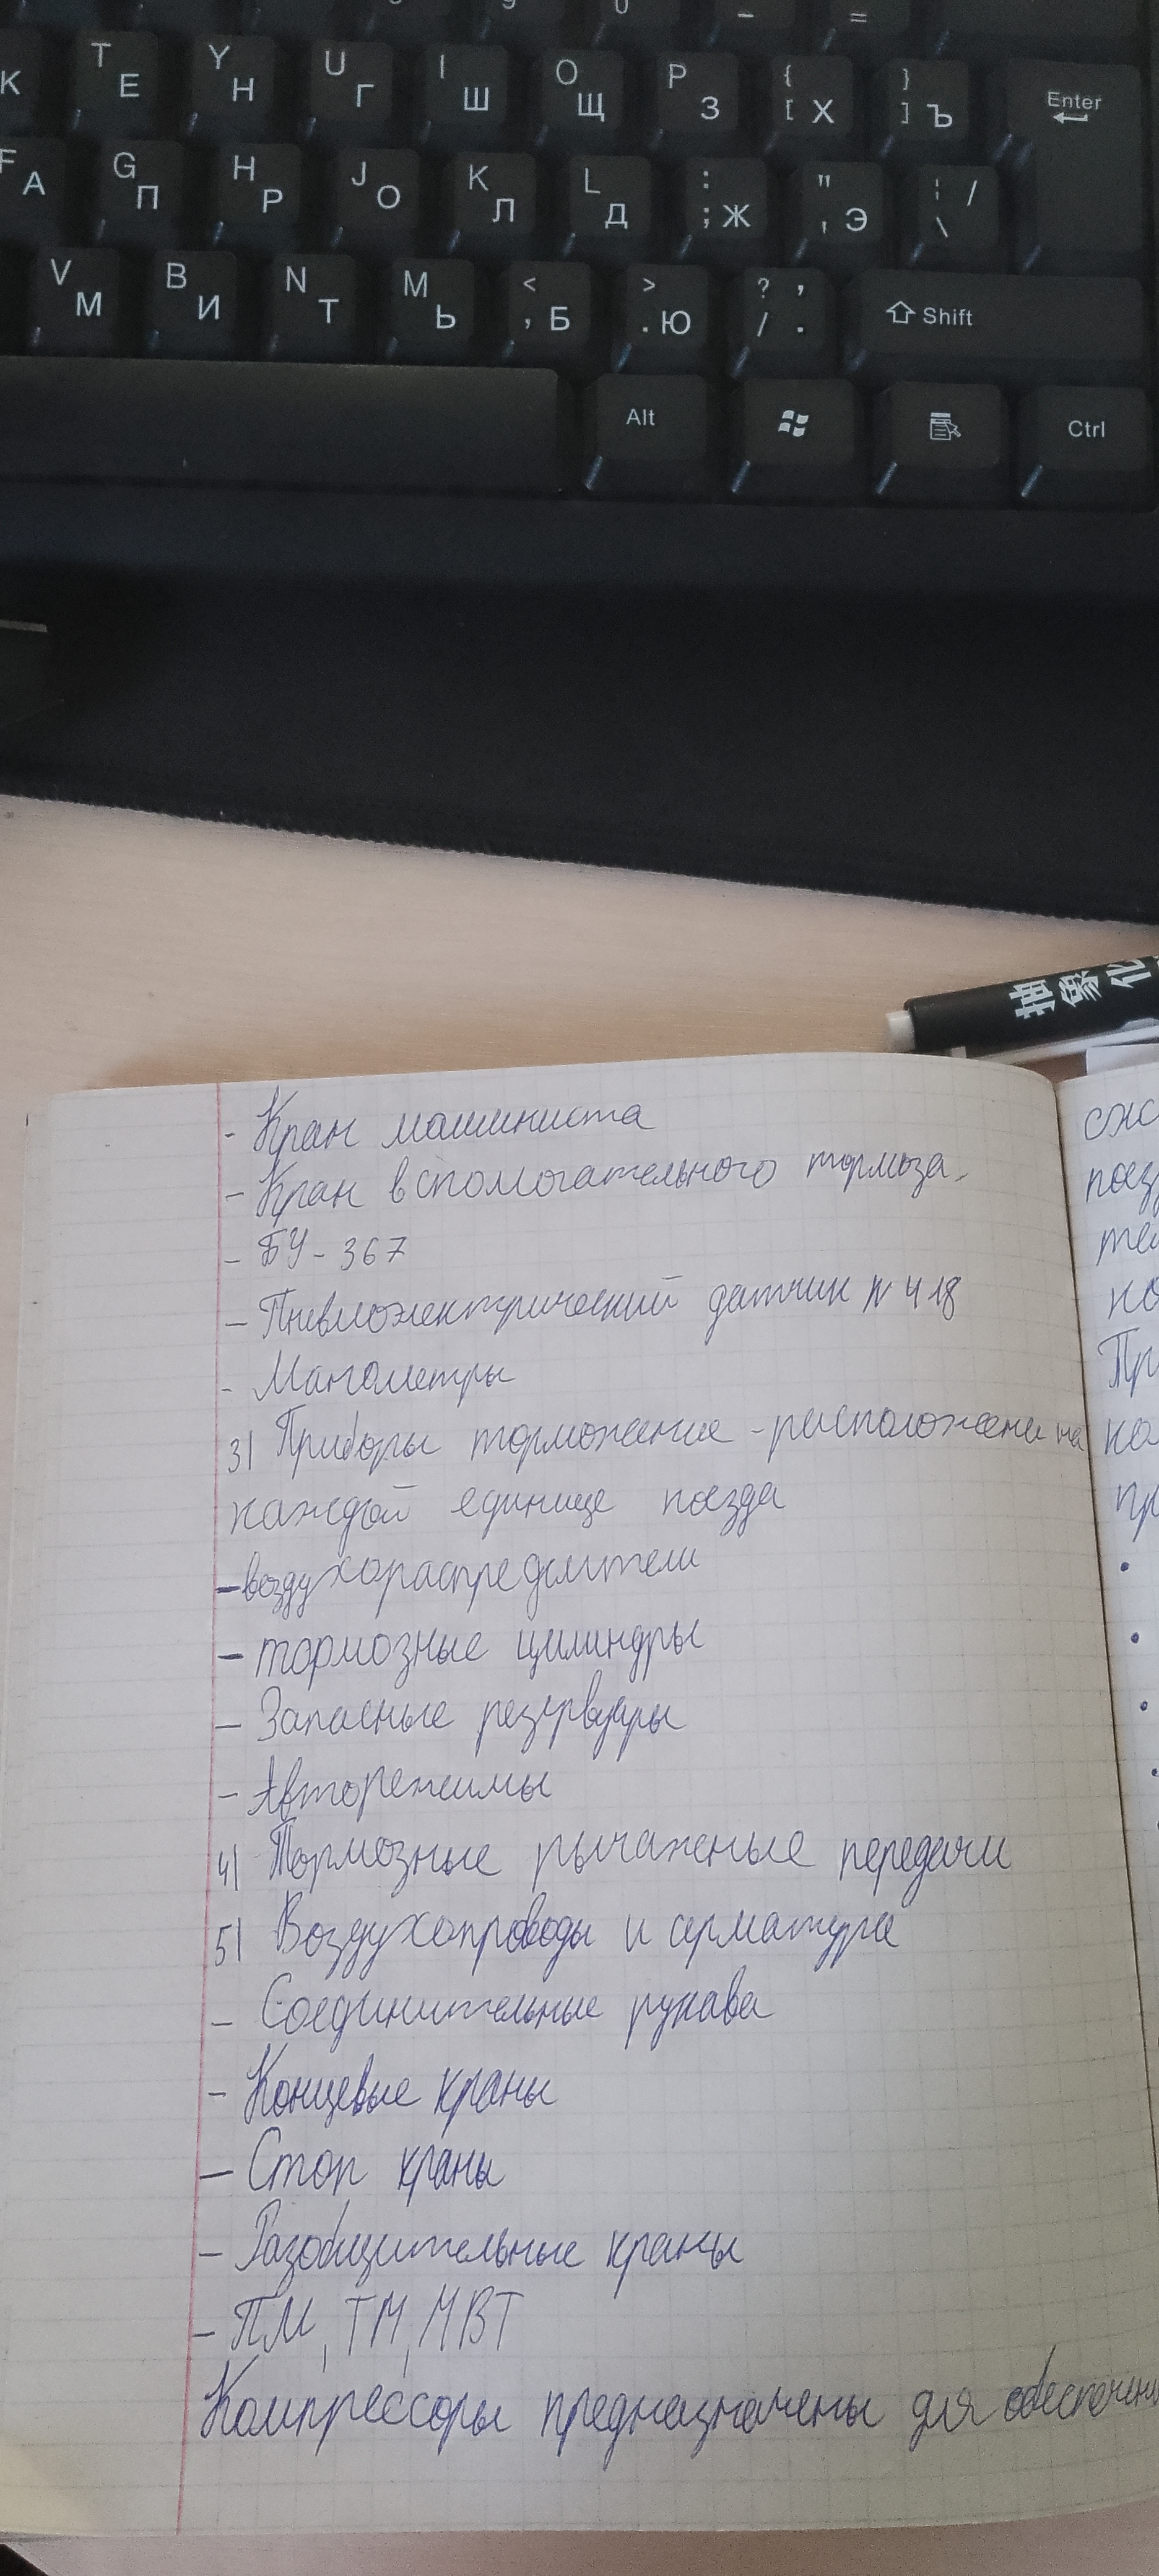 9 0 - =
K T Е Y Н U Г I Ш O Щ P З { [ Х } ] Ъ Enter
F А G П H Р J О K Л L Д : ; Ж " ' Э ¦ \ /
V М B И N Т M Ь < , Б > . Ю ? / , . Shift
Alt Ctrl
抽象化
- Кран машиниста
- Кран вспомогательного тормоза.
- БУ-367
- Пневмоэлектрический датчик N 418
- Манометры
3) Приборы торможение - расположени на
каждой единице поезда
- воздухораспределители
- тормозные цилиндры
- Запасные резервуары
- Авторежимы
4) Тормозные рычажные передачи
5) Воздухопроводы и арматура
- Соединительные рукава
- Концевые краны
- Стоп краны
- Разобщительные краны
- ПМ, ТМ, МВТ
Компрессоры предназначены для обеспечени
сж
поез
те
ко
Пр
ко
пр